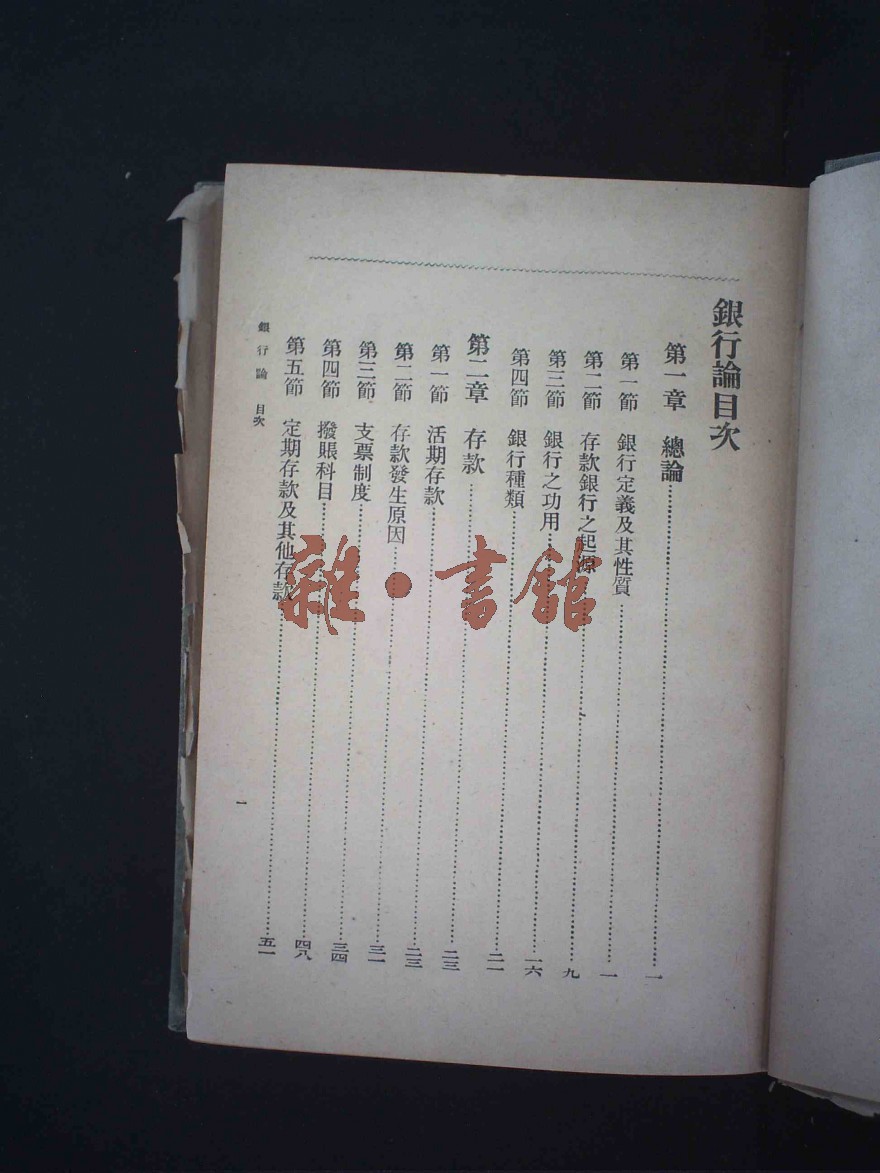 銀行論目次
第一章 總論……一
第一節 銀行定義及其性質……一
第二節 存款銀行之起源……九
第三節 銀行之功用……一六
第四節 銀行種類……二一
第二章 存款……二三
第一節 活期存款……二三
第二節 存款發生原因……三一
第三節 支票制度……三四
第四節 撥賬科目……四八
第五節 定期存款及其他存款……五一
銀行論 目次
一
雜·書館